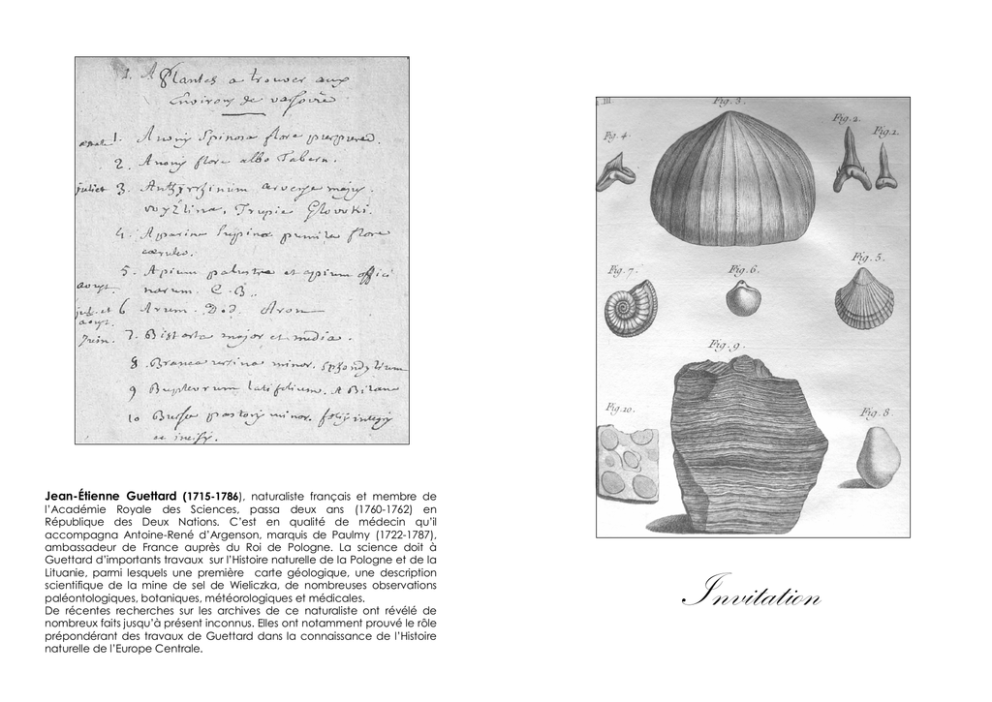 1. A Plantes a trouver aux
Environs de varsovie
1. Anonis Spinosa flore purpureo.
2. Anonis flore albo Tabern.
juillet 3. Antirrhinum arvense majus.
4. Aparine supina pumila flore
caeruleo.
5. Apium palustre et apium offici
narum. C. B..
6 Arum. Dod. Aron
Juin. 7. Bistorta major et media.
8. Branca ursina minor. Sphondylium
9 Bupleurum latifolium. A
10 Bursa pastoris minor. foliis integris
Jean-Étienne Guettard (1715-1786), naturaliste français et membre de
l'Académie Royale des Sciences, passa deux ans (1760-1762) en
République des Deux Nations. C'est en qualité de médecin qu'il
accompagna Antoine-René d'Argenson, marquis de Paulmy (1722-1787),
ambassadeur de France auprès du Roi de Pologne. La science doit à
Guettard d'importants travaux sur l'Histoire naturelle de la Pologne et de la
Lituanie, parmi lesquels une première carte géologique, une description
scientifique de la mine de sel de Wieliczka, de nombreuses observations
paléontologiques, botaniques, météorologiques et médicales.
De récentes recherches sur les archives de ce naturaliste ont révélé de
nombreux faits jusqu'à présent inconnus. Elles ont notamment prouvé le rôle
prépondérant des travaux de Guettard dans la connaissance de l'Histoire
naturelle de l'Europe Centrale.
III.
Fig. 3.
Fig. 4.
Fig. 2.
Fig. 1.
Fig. 7.
Fig. 6.
Fig. 5.
Fig. 9.
Fig. 10.
Fig. 8.
Invitation